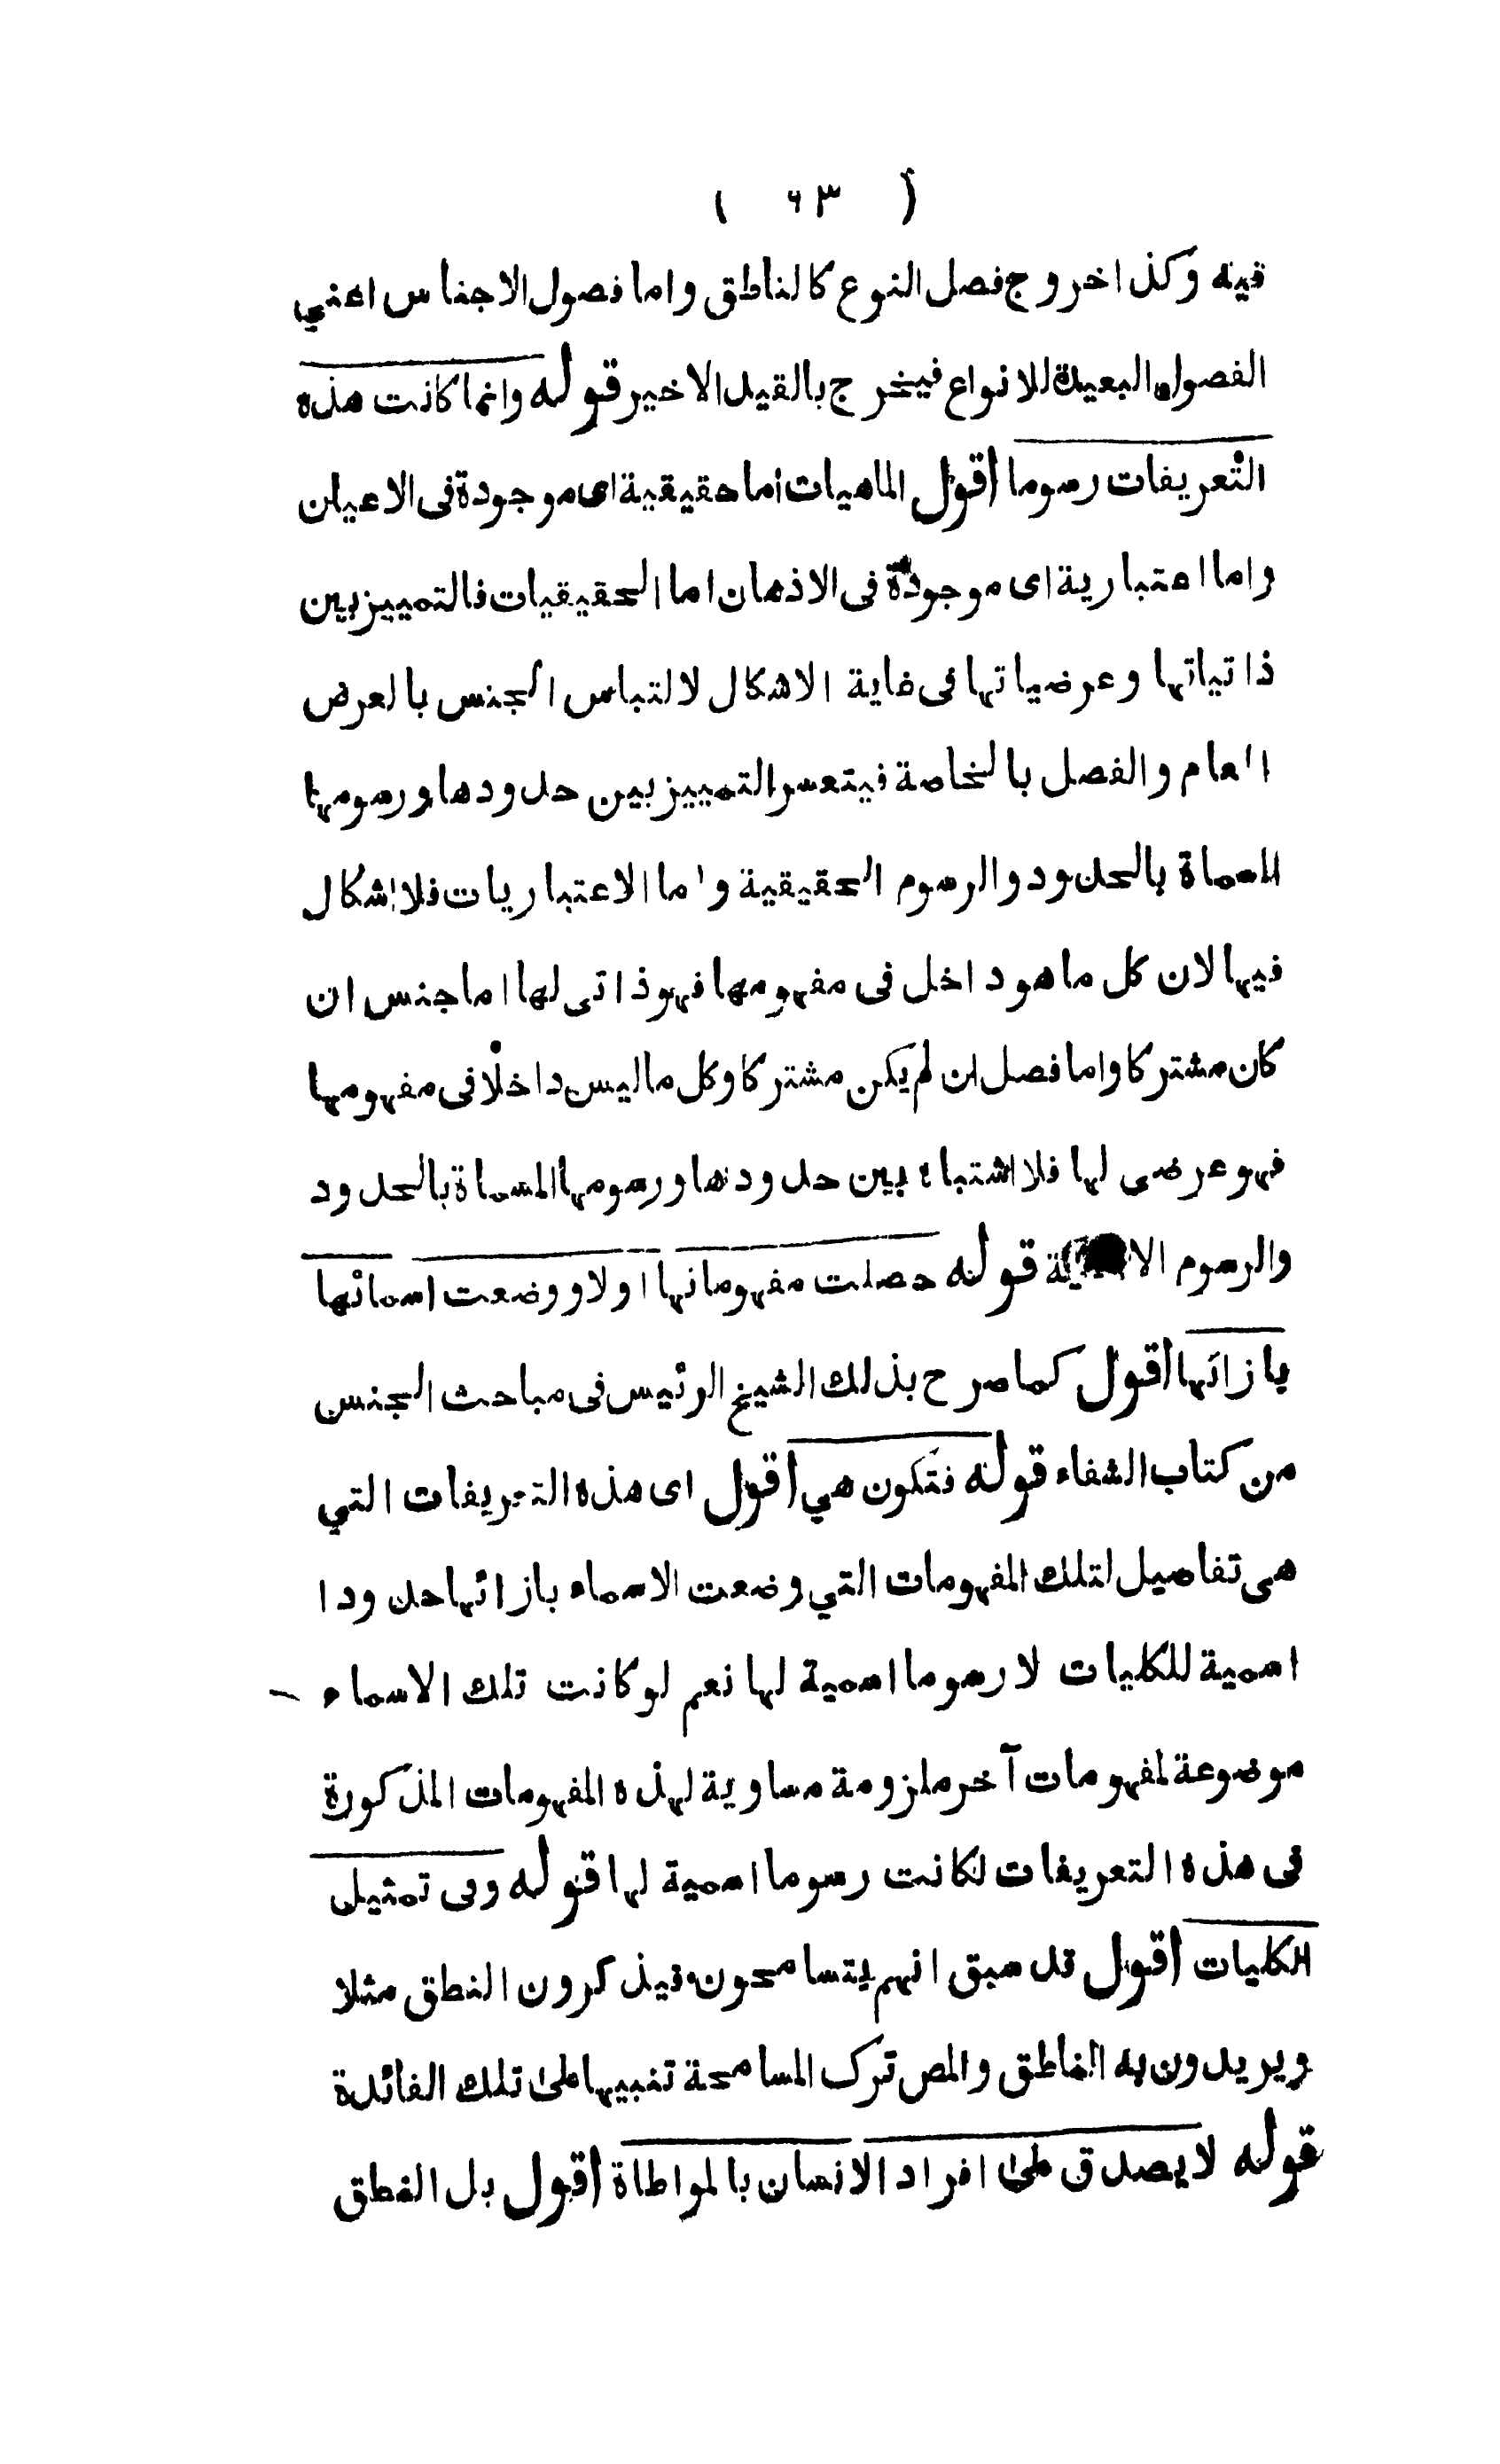 ( ٦٣ )
فيه وكذا خروج فصل النوع كالناطق واما فصول الاجناس اعني
الفصول البعيدة للانواع فيخرج بالقيد الاخير قوله وانما كانت هذه
التعريفات رسوما اقول الماهيات اما حقيقية اى موجودة فى الاعيان
واما اعتبارية اى موجودة فى الاذهان اما الحقيقيات فالتمييز بين
ذاتياتها وعرضياتها فى غاية الاشكال لالتباس الجنس بالعرض
العام والفصل بالخاصة فيتعسر التمييز بين حدودها ورسومها
المسماة بالحدود والرسوم الحقيقية واما الاعتباريات فلا اشكال
فيها لان كل ما هو داخل فى مفهومها فهو ذاتى لها اما جنس ان
كان مشتركا واما فصل ان لم يكن مشتركا وكل ما ليس داخلا فى مفهومها
فهو عرضى لها فلا اشتباه بين حدودها ورسومها المسماة بالحدود
والرسوم قوله حصلت مفهوماتها اولا ووضعت اسمائها
بازائها اقول كما صرح بذلك الشيخ الرئيس فى مباحث الجنس
من كتاب الشفاء قوله فتكون هي اقول اى هذه التعريفات التي
هى تفاصيل لتلك المفهومات التي وضعت الاسماء بازائها حدودا
اسمية للكليات لا رسوما اسمية لها نعم لو كانت تلك الاسماء
موضوعة لمفهومات آخر ملزومة مساوية لهذه المفهومات المذكورة
فى هذه التعريفات لكانت رسوما اسمية لها قوله وفى تمثيل
الكليات اقول قد سبق انهم يتسامحون فيذكرون النطق مثلا
ويريدون به الناطق والمص ترك المسامحة تنبيها على تلك الفائدة
قوله لا يصدق على افراد الانسان بالمواطاة اقول بل النطق